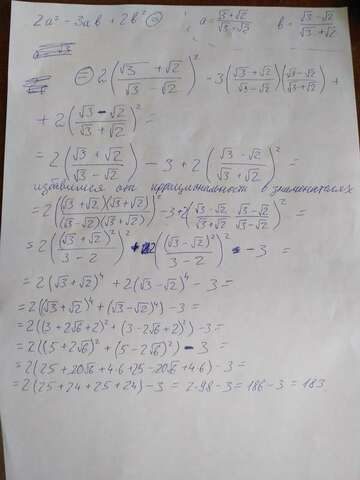 2a² - 3ab + 2b² = a = (√3+√2)/(√3-√2) b = (√3-√2)/(√3+√2)
= 2((√3+√2)/(√3-√2))² - 3((√3+√2)/(√3-√2))((√3-√2)/(√3+√2)) +
+ 2((√3-√2)/(√3+√2))² =
= 2((√3+√2)/(√3-√2))² - 3 + 2((√3-√2)/(√3+√2))² =
избавимся от иррациональности в знаменателях
= 2((√3+√2)(√3+√2)/(√3-√2)(√3+√2))² - 3 + 2((√3-√2)/(√3+√2) · (√3-√2)/(√3-√2))² =
= 2((√3+√2)²/(3-2))² + 2((√3-√2)²/(3-2))² - 3 =
= 2(√3+√2)⁴ + 2(√3-√2)⁴ - 3 =
= 2((√3+√2)⁴ + (√3-√2)⁴) - 3 =
= 2((3+2√6+2)² + (3-2√6+2)²) - 3 =
= 2((5+2√6)² + (5-2√6)²) - 3 =
= 2(25+20√6+4·6+25-20√6+4·6) - 3 =
= 2(25+24+25+24) - 3 = 2·98 - 3 = 186 - 3 = 183